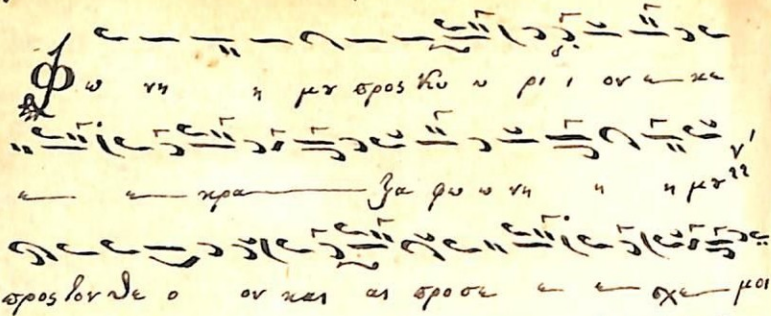 Φ ω νη η μου προς Κυ υ ρι ι ον ε κε
ε ε κρα ξα φω ω νη η η μου
προς τον Θε ο ον και αι προσε ε ε σχε μοι